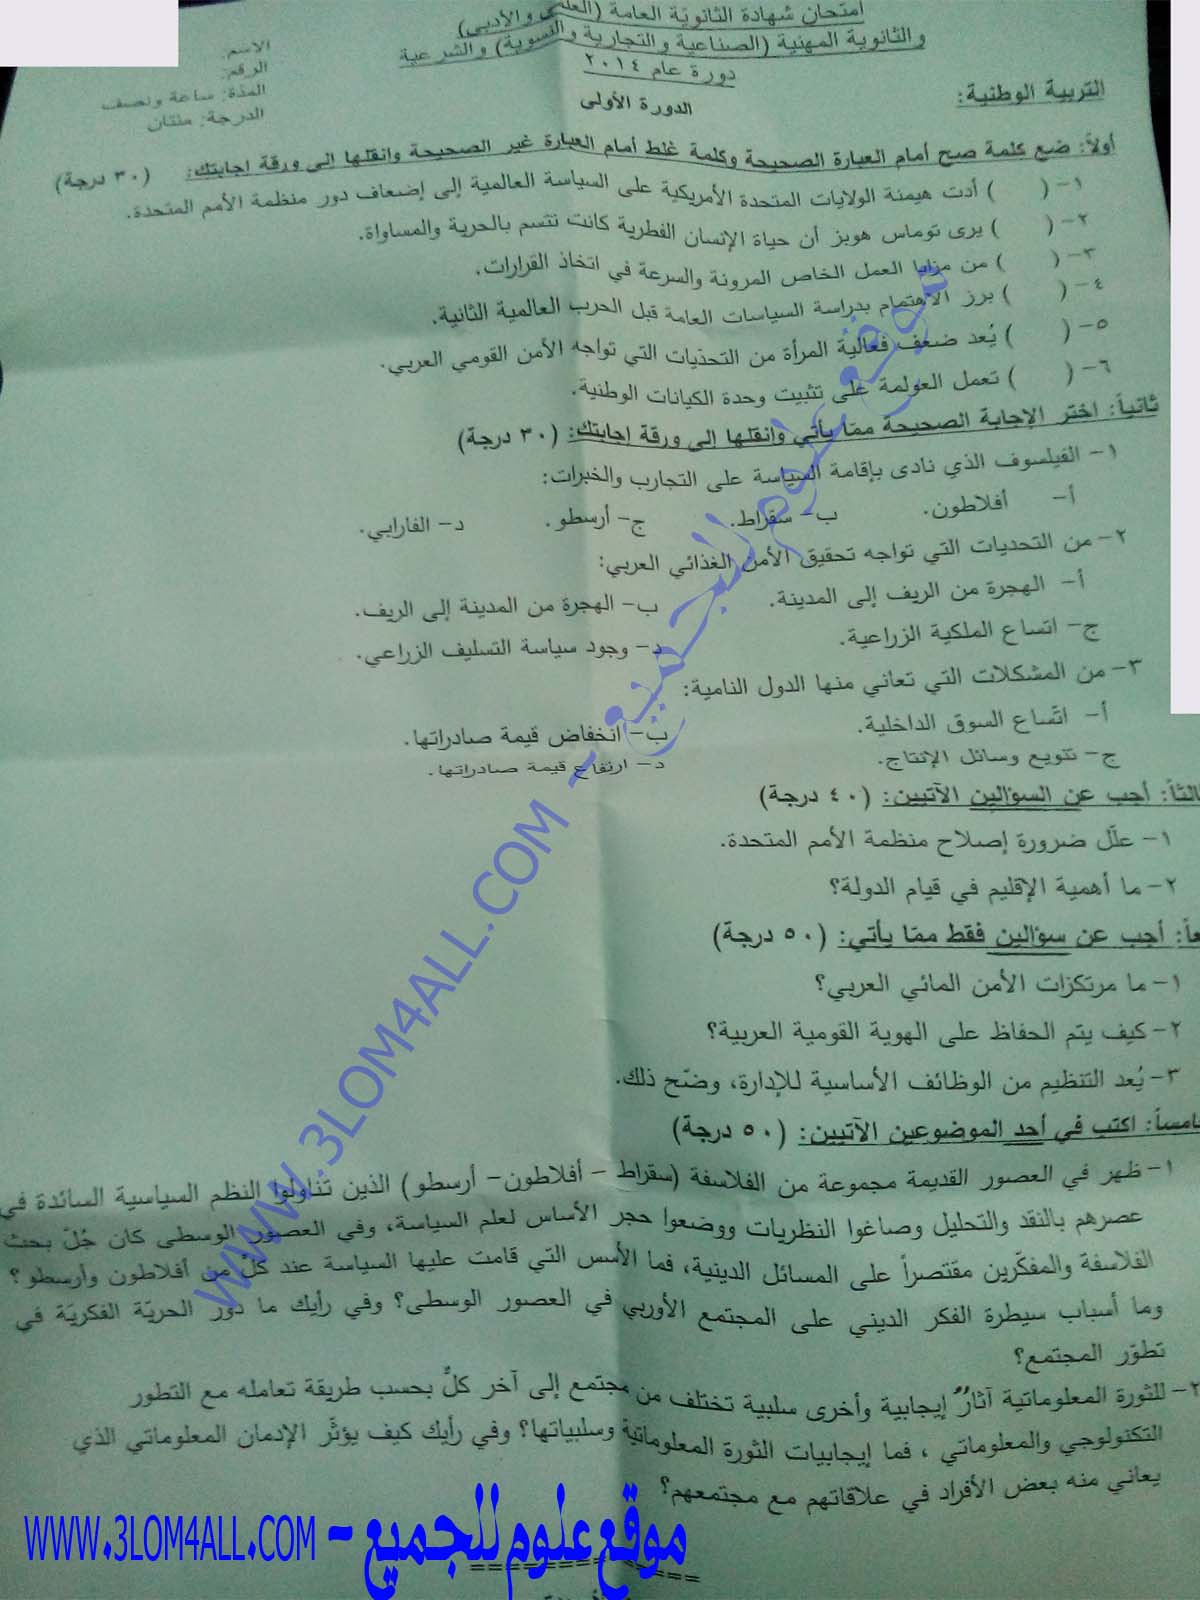 امتحان شهادة الثانوية العامة (العلمي والأدبي)
والثانوية المهنية (الصناعية والتجارية والنسوية) والشرعية
دورة عام ٢٠١٤
الدورة الأولى
الاسم:
الرقم:
المدة: ساعة ونصف
الدرجة: مئتان
التربية الوطنية:
أولاً: ضع كلمة صح أمام العبارة الصحيحة وكلمة غلط أمام العبارة غير الصحيحة وانقلها إلى ورقة إجابتك: (٣٠ درجة)
١- ( ) أدت هيمنة الولايات المتحدة الأمريكية على السياسة العالمية إلى إضعاف دور منظمة الأمم المتحدة.
٢- ( ) يرى توماس هوبز أن حياة الإنسان الفطرية كانت تتسم بالحرية والمساواة.
٣- ( ) من مزايا العمل الخاص المرونة والسرعة في اتخاذ القرارات.
٤- ( ) برز الاهتمام بدراسة السياسات العامة قبل الحرب العالمية الثانية.
٥- ( ) يُعد ضعف فعالية المرأة من التحديات التي تواجه الأمن القومي العربي.
٦- ( ) تعمل العولمة على تثبيت وحدة الكيانات الوطنية.
ثانياً: اختر الإجابة الصحيحة ممّا يأتي وانقلها إلى ورقة إجابتك: (٣٠ درجة)
١- الفيلسوف الذي نادى بإقامة السياسة على التجارب والخبرات:
أ- أفلاطون. ب- سقراط. ج- أرسطو. د- الفارابي.
٢- من التحديات التي تواجه تحقيق الأمن الغذائي العربي:
أ- الهجرة من الريف إلى المدينة. ب- الهجرة من المدينة إلى الريف.
ج- اتساع الملكية الزراعية. د- وجود سياسة التسليف الزراعي.
٣- من المشكلات التي تعاني منها الدول النامية:
أ- اتّساع السوق الداخلية. ب- انخفاض قيمة صادراتها.
ج- تنويع وسائل الإنتاج. د- ارتفاع قيمة صادراتها.
الثاً: أجب عن السؤالين الآتيين: (٤٠ درجة)
١- علّل ضرورة إصلاح منظمة الأمم المتحدة.
٢- ما أهمية الإقليم في قيام الدولة؟
عاً: أجب عن سؤالين فقط ممّا يأتي: (٥٠ درجة)
١- ما مرتكزات الأمن المائي العربي؟
٢- كيف يتم الحفاظ على الهوية القومية العربية؟
٣- يُعد التنظيم من الوظائف الأساسية للإدارة، وضّح ذلك.
امساً: اكتب في أحد الموضوعين الآتيين: (٥٠ درجة)
١- ظهر في العصور القديمة مجموعة من الفلاسفة (سقراط - أفلاطون- أرسطو) الذين تناولوا النظم السياسية السائدة في
عصرهم بالنقد والتحليل وصاغوا النظريات ووضعوا حجر الأساس لعلم السياسة، وفي العصور الوسطى كان جُلّ بحث
الفلاسفة والمفكّرين مقتصراً على المسائل الدينية، فما الأسس التي قامت عليها السياسة عند كلّ من أفلاطون وأرسطو؟
وما أسباب سيطرة الفكر الديني على المجتمع الأوربي في العصور الوسطى؟ وفي رأيك ما دور الحريّة الفكريّة في
تطوّر المجتمع؟
٢- للثورة المعلوماتية آثارٌ إيجابية وأخرى سلبية تختلف من مجتمع إلى آخر كلٌّ بحسب طريقة تعامله مع التطور
التكنولوجي والمعلوماتي ، فما إيجابيات الثورة المعلوماتية وسلبياتها؟ وفي رأيك كيف يؤثّر الإدمان المعلوماتي الذي
يعاني منه بعض الأفراد في علاقاتهم مع مجتمعهم؟
موقع علوم للجميع - WWW.3LOM4ALL.COM
موقع علوم للجميع - WWW.3LOM4ALL.COM